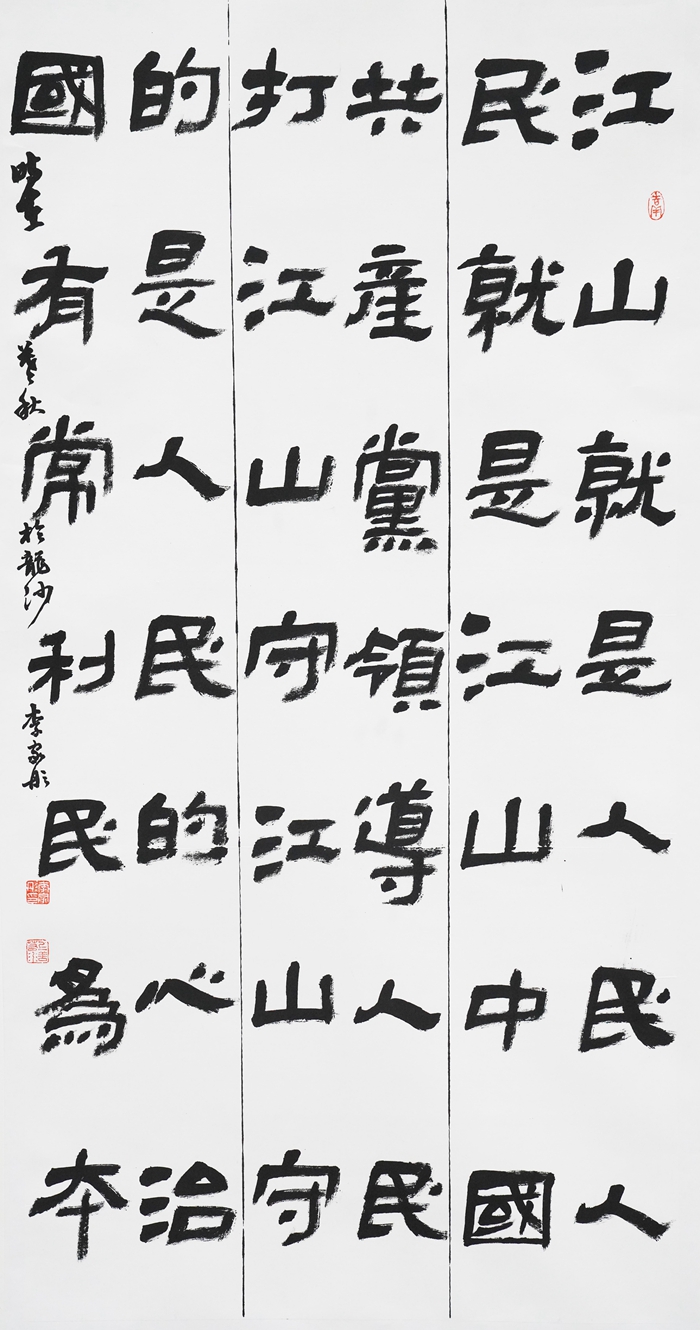 江山就是人民人
民就是江山中國
共產黨領導人民
打江山守江山守
的是人民的心治
國有常利民為本
時在
暮秋
於龍沙
李家彤